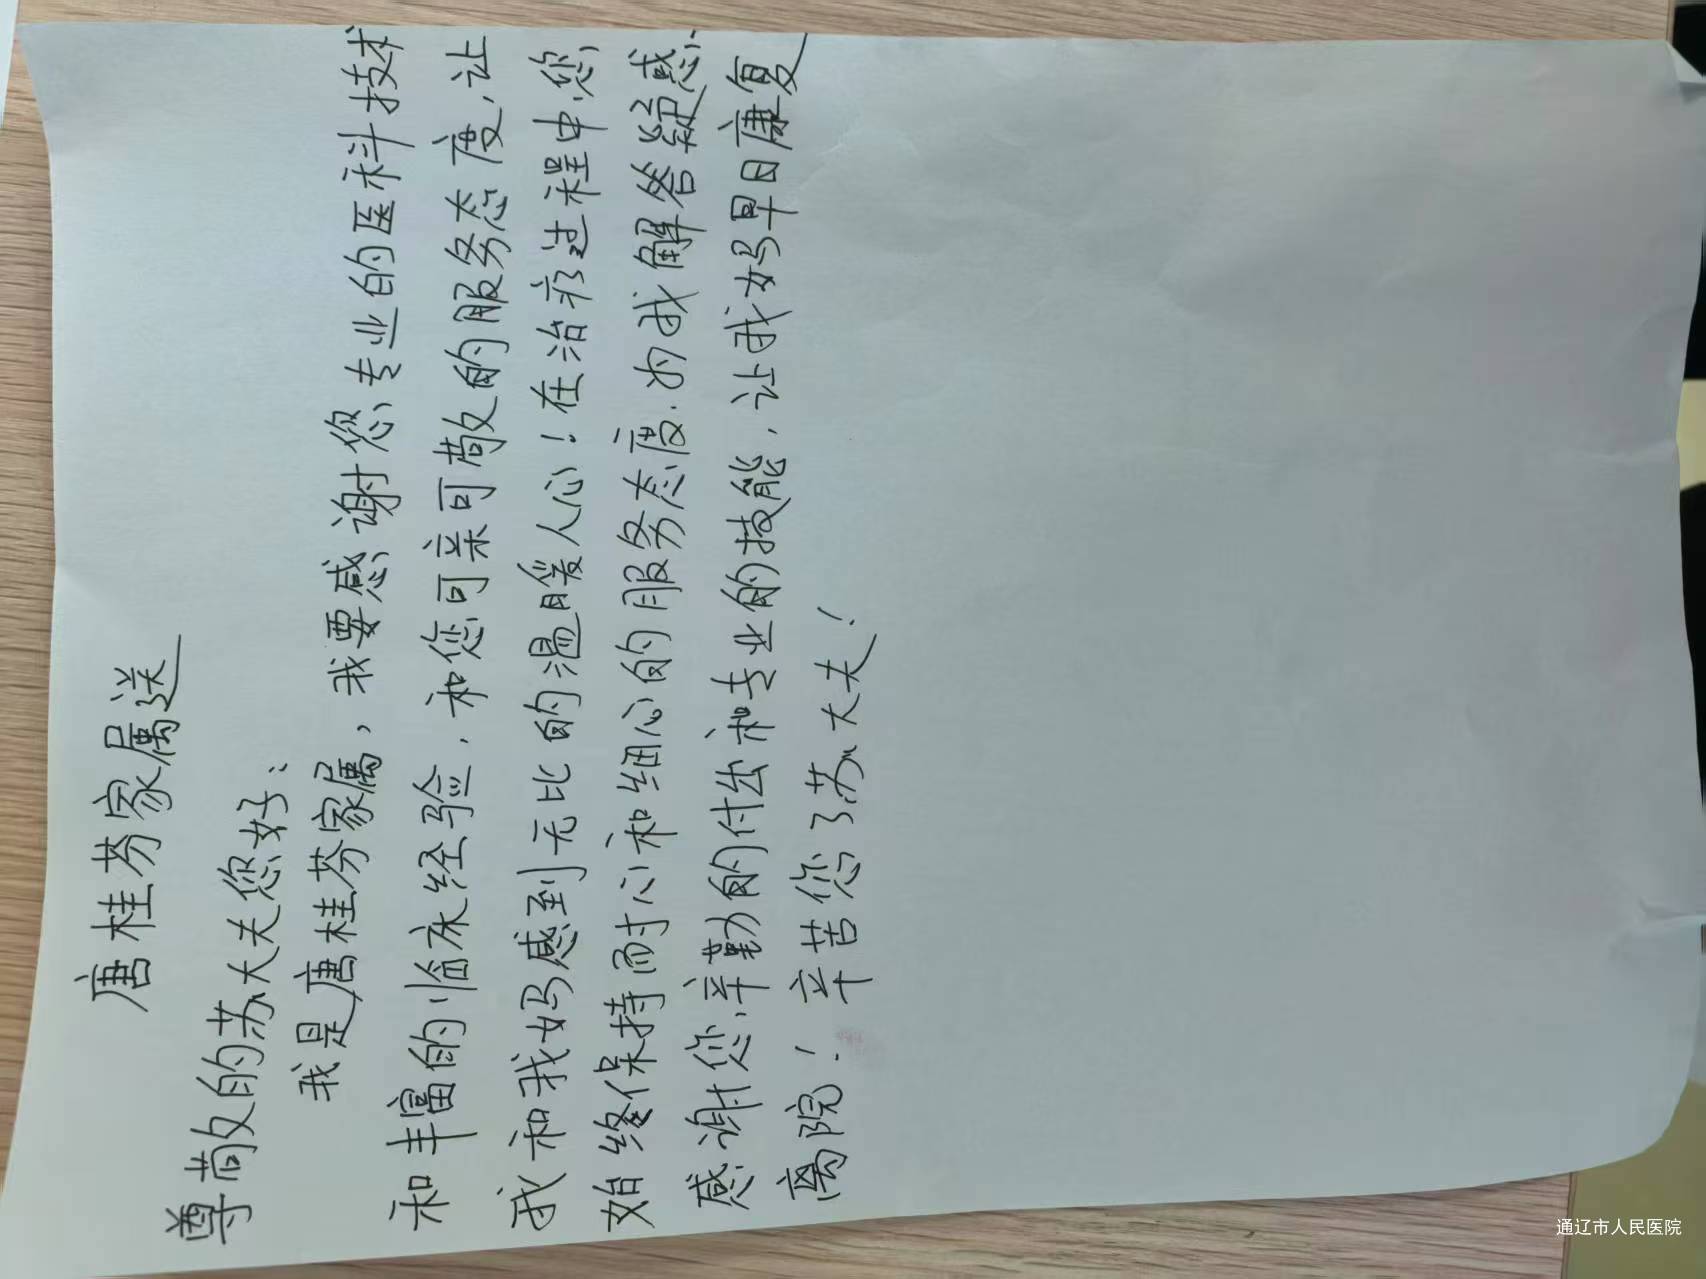 唐桂芬家属送
尊敬的苏大夫您好：
我是唐桂芬家属，我要感谢您专业的医科技术
和丰富的临床经验，和您可亲可敬的服务态度，让
我和我妈感到无比的温暖人心！在治疗过程中，您
始终保持耐心和细心的服务态度，为我解答疑惑，
感谢您辛勤的付出和专业的技能，让我妈早日康复
离院！辛苦您了苏大夫！
通辽市人民医院